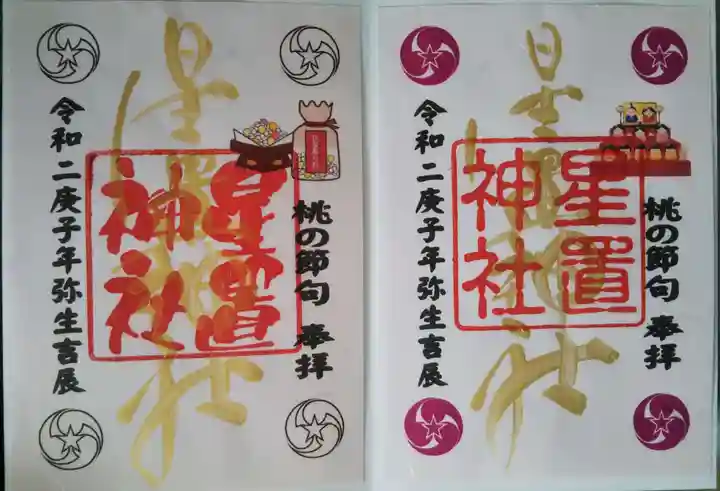 桃の節句 奉拝
星置
神社
星置神社
令和二庚子年弥生吉辰
桃の節句 奉拝
星置
神社
星置神社
令和二庚子年弥生吉辰